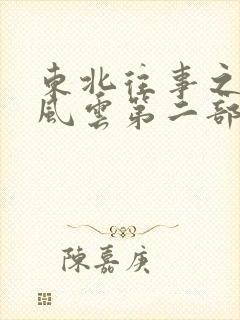 東北往事之
風雲第二部
陳嘉庚